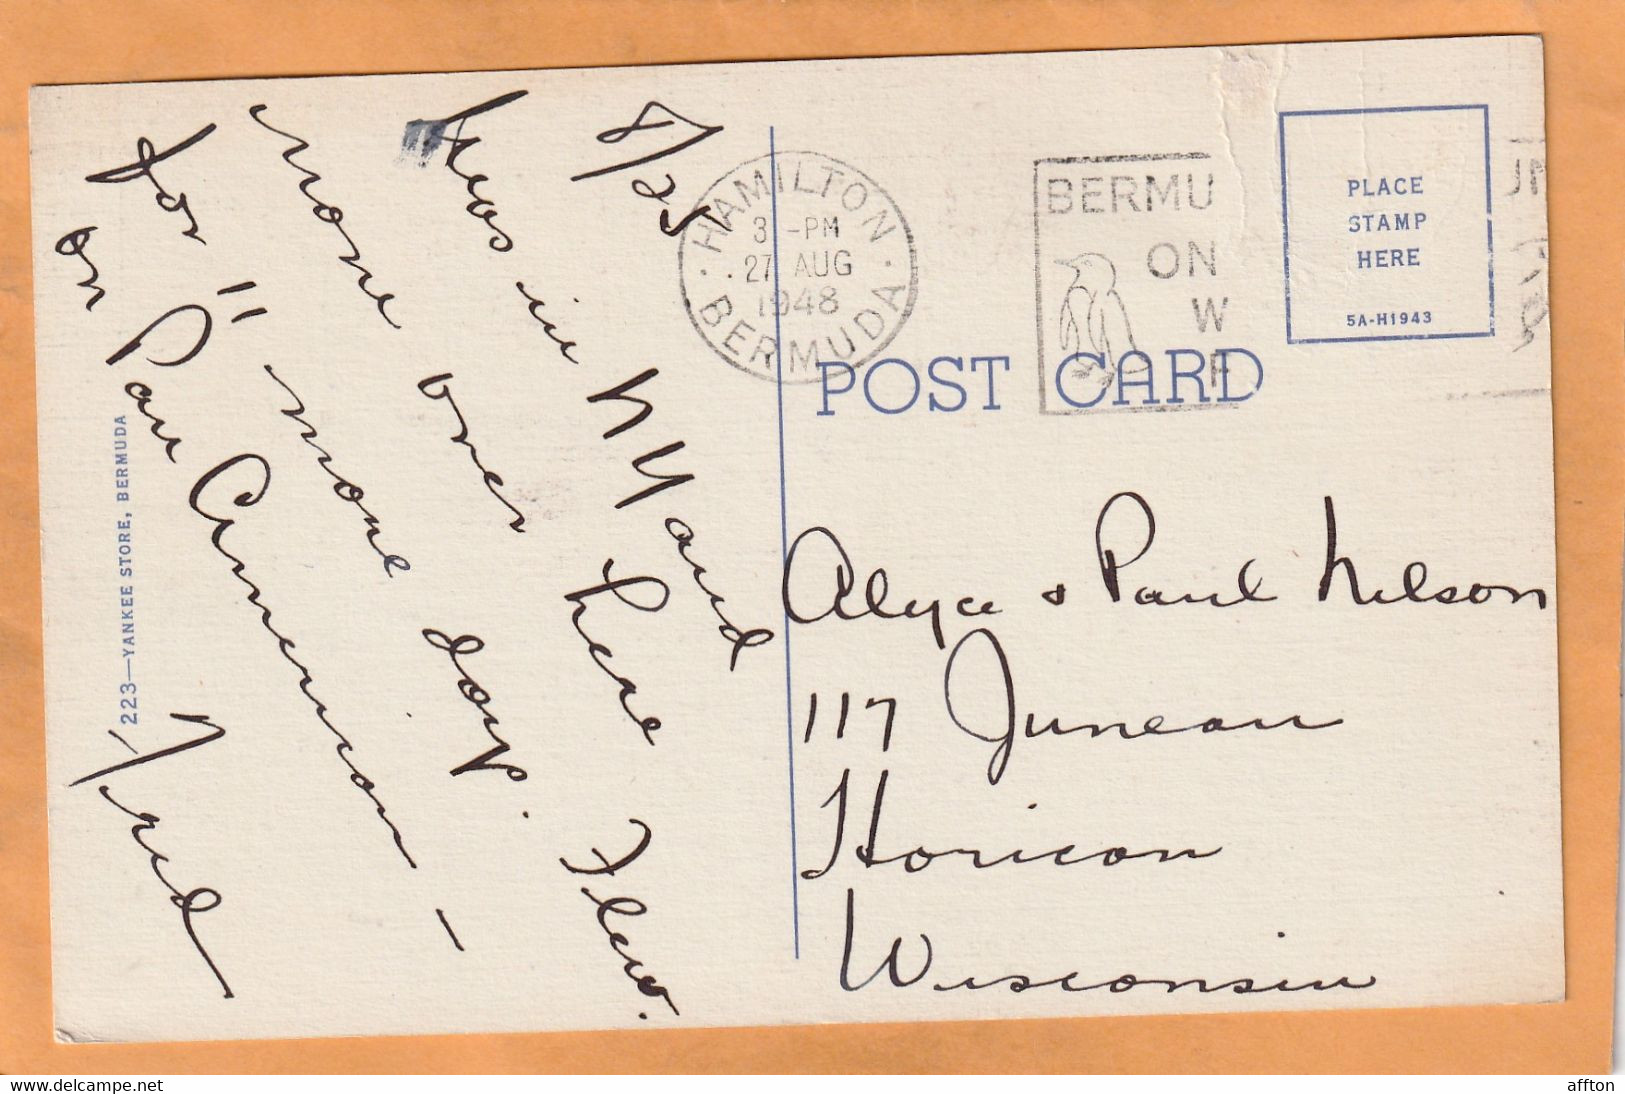 8/25
Was in N Y and
none over here
for 11 more days. Flew
on Pan American –
Fred
223—YANKEE STORE, BERMUDA
HAMILTON
3 -PM
27 AUG
1948
BERMUDA
BERMU
ON
W
F
PLACE
STAMP
HERE
5A-H1943
POST CARD
Alyce & Paul Nelson
117 Juneau
Horicon
Wisconsin
affton